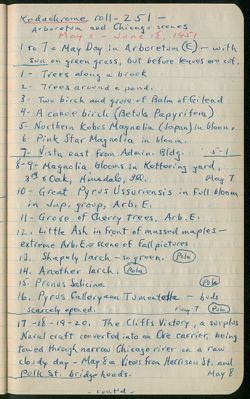 Kodachrome roll - 251 -
Arboretum and Chicago scenes
May 1 - June 18, 1951
1 to 7 = May Day in Arboretum (E) - with
sun on green grass, but before leaves are out.
1 - Trees along a brook
2 - Trees around a pond.
3 - Two birch and grove of Balm of Gilead
4 - A canoe birch (Betula Papyrifera)
5 - Northern Kobus Magnolia (Japan) in bloom.
6 - Pink Star Magnolia in bloom.
7 - Vista east from Admin. Bldg. 5-1
8-9 - Magnolia blooms in Kettering yard,
3rd & Oak, Hinsdale, Ill. May 7
10 - Great Pyrus Ussuriensis in full bloom
in Jap. group, Arb. E.
11 - Grove of Cherry trees, Arb. E.
12. Little Ash in front of massed maples -
extreme Arb. E. scene of fall pictures
13. Shapely larch - so green. Pola
14. Another larch. Pola
15. Prunus Salicina Pola
16. Pyrus Calleryana Tomentella - buds
scarcely opened. May 7 Pola
17 - 18 - 19 - 20. The Cliffs Victory, a surplus
Naval craft converted into an Ore carrier, being
towed through narrow Chicago river on a raw
cloudy day - May 8 = Views from Harrison St. and
Polk St. bridge heads. May 8
- contd -